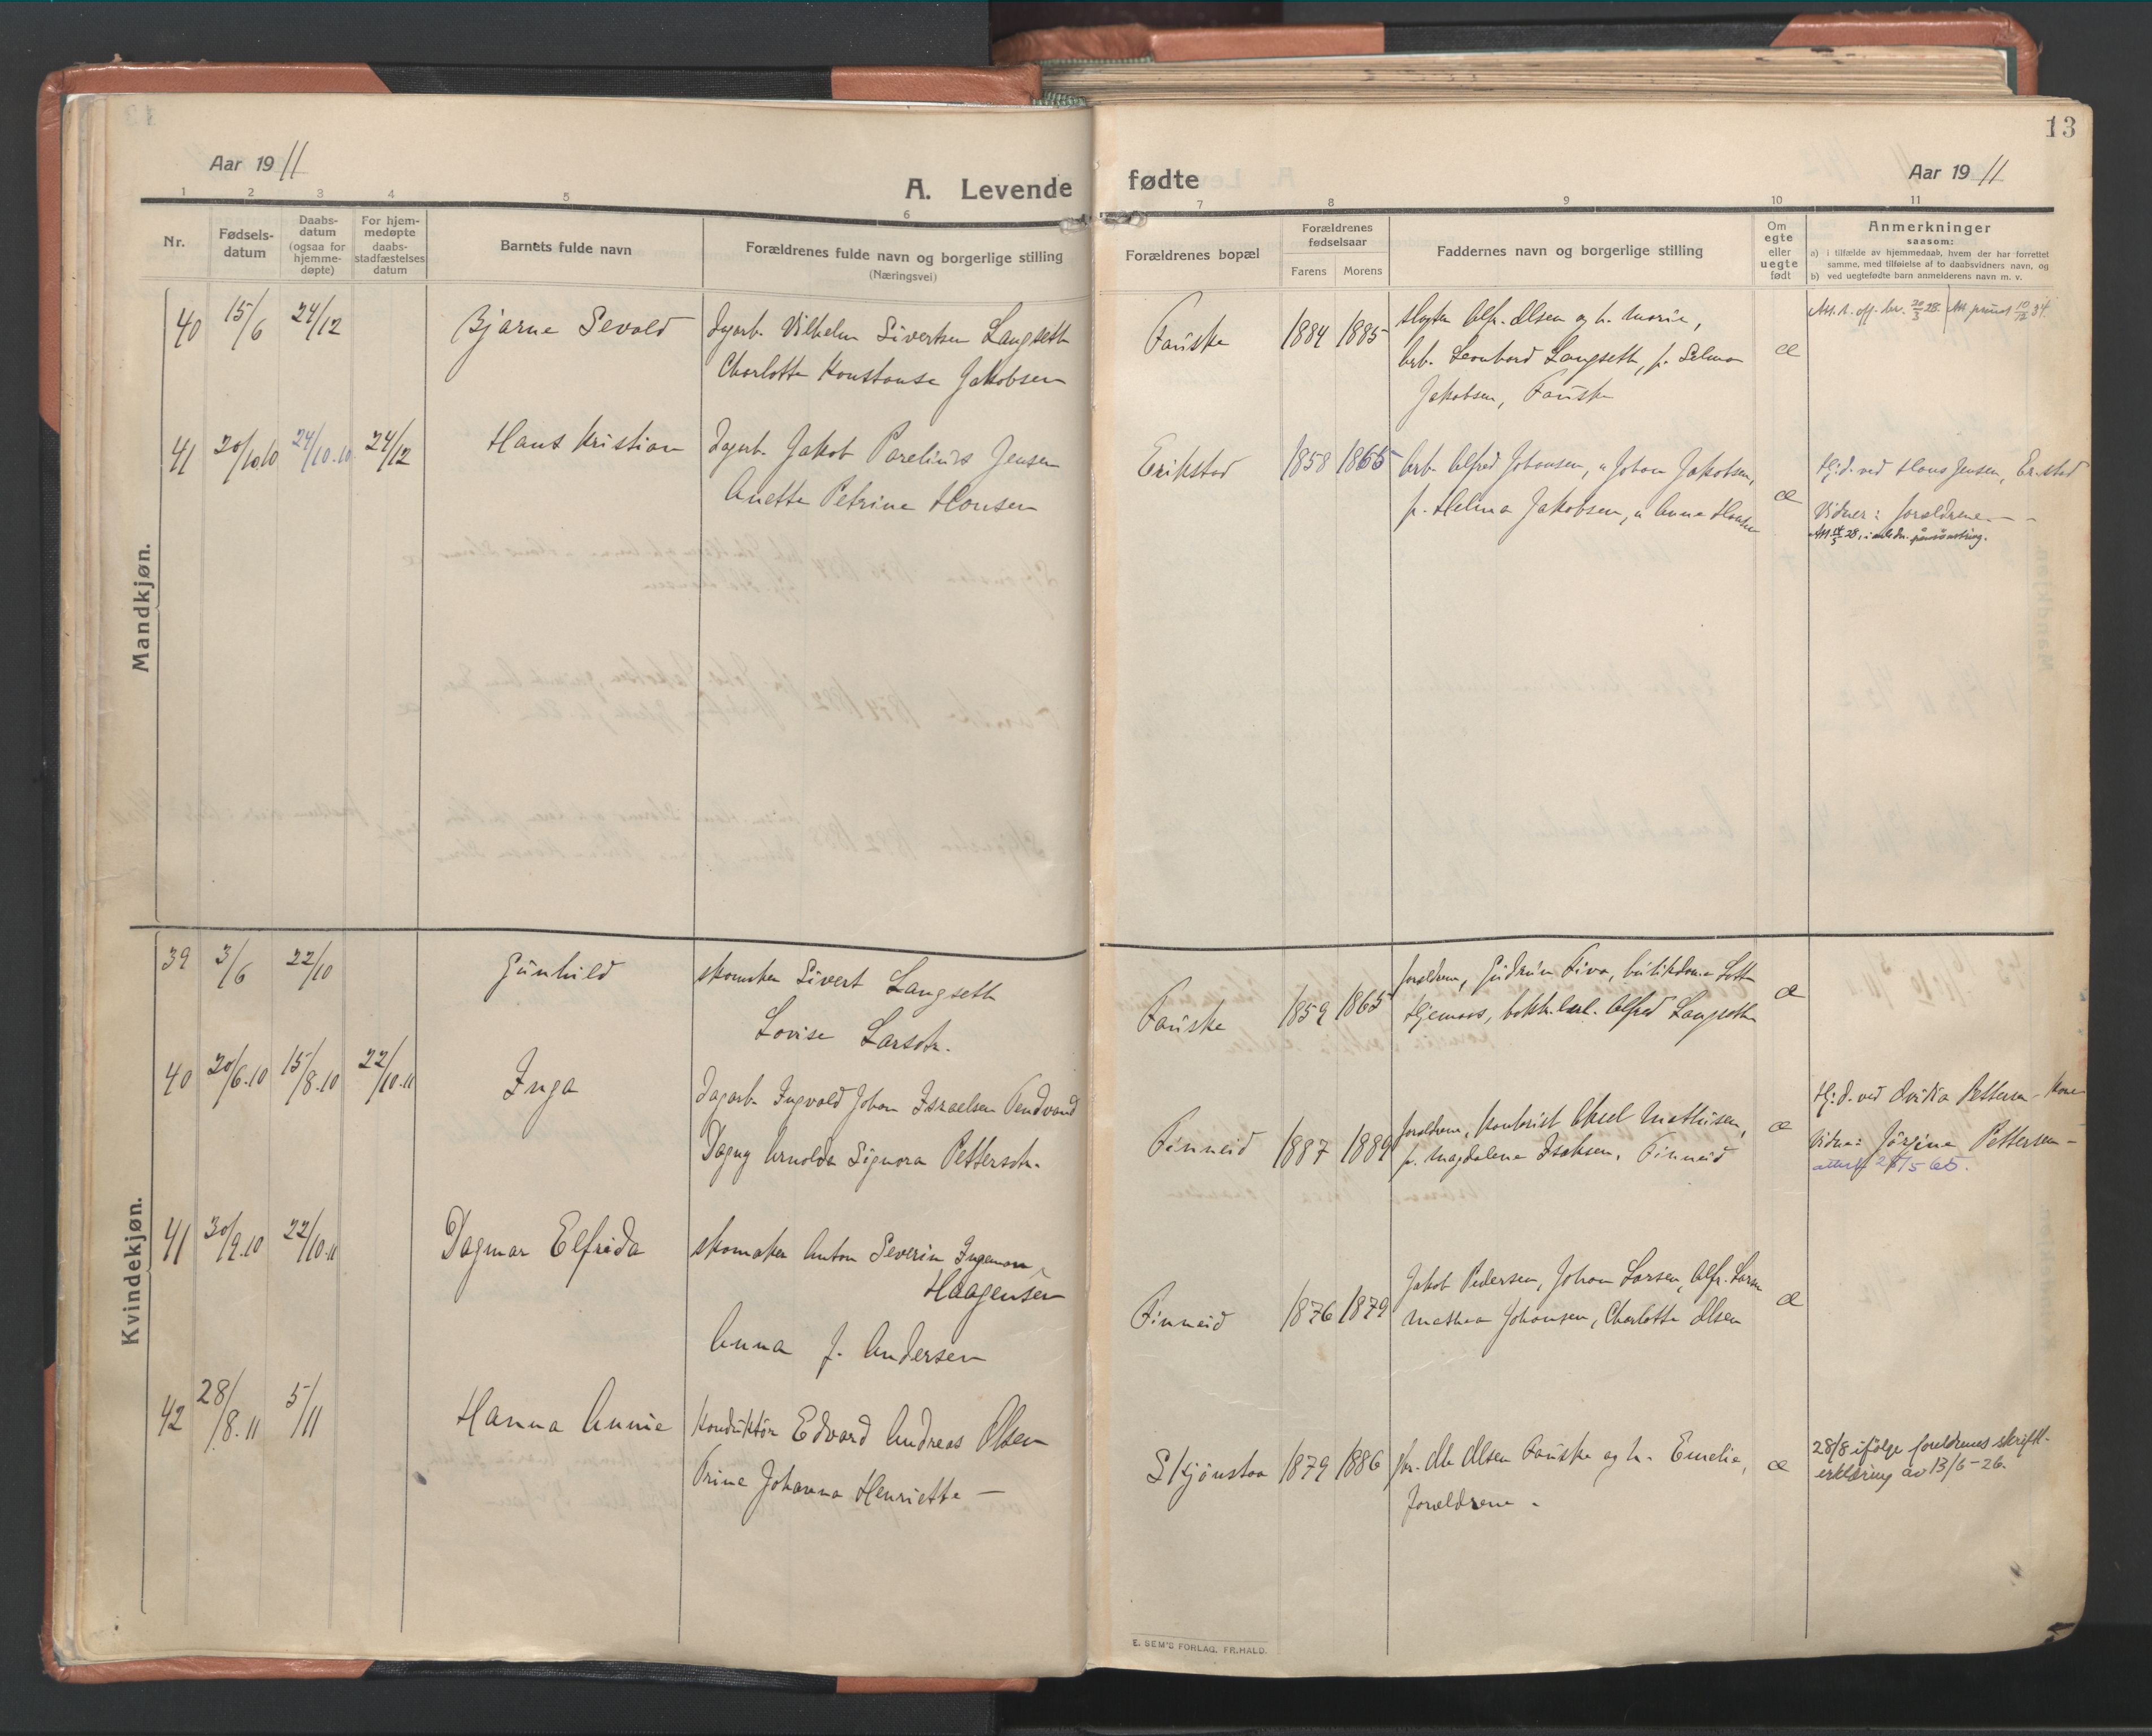 13
Aar 1911
A. Levende
fødte
Aar 1911
1 2 3 4 5 6 7 8 9 10 11
Nr.
Fødsels-
datum
Daabs-
datum
(ogsaa for
hjemme-
døpte)
For hjem-
medøpte
daabs-
stadfæstelses
datum
Barnets fulde navn
Forældrenes fulde navn og borgerlige stilling
(Næringsvei)
Forældrenes bopæl
Forældrenes
fødselsaar
Farens Morens
Faddernes navn og borgerlige stilling
Om
egte
eller
uegte
født
Anmerkninger
saasom:
a) i tilfælde av hjemmedaab, hvem der har forrettet
samme, med tilføielse af to daabsvidners navn, og
b) ved uegtefødte barn anmelderens navn m. v.
Mandkjøn.
40 15/6 24/12 Bjarne Sevald Dgarb. Vilhelm Sivertsen Langseth
Charlotte Konstanse Jakobsen
Fauske 1884 1885 Slagter Alfr. Olsen og h. Marie,
Arb. Leonhard Langseth, p. Selma
Jakobsen, Fauske
æ
41 20/10.10 24/10.10 24/12 Hans Kristian Dgarb. Jakob Parelius Jensen
Anette Petrine Hansen
Erikstad 1858 1865 Arb. Alfred Johansen, " Johan Jakobsen,
p. Helma Jakobsen, " Anna Hansen
æ
Hj.d. ved Hans Jensen, Er.stad
Vidner: forældrene
Kvindekjøn.
39 3/6 22/10 Gunhild skomaker Sivert Langseth
Lovise Larsdtr.
Fauske 1859 1865 forældrene, Gudrun Siva, butikdame Lotte
Hjemaas, bokh. Alfred Langseth
æ
40 20/6.10 15/8.10 22/10.11 Inga Dagarb. Ingvald Johan Israelsen Tendvand
Dagny Arnolda Signora Pettersdtr.
Finneid 1887 1889 forældrene, Kontorist Aksel Mathisen,
p. Magdalene Isaksen, Finneid
æ
Hj.d. ved Ovidia Pettersen - Kone
Vidne: Jørgine Pettersen -
attest 28/5 65.
41 30/9.10 22/10.11 Dagmar Elfrida skomaker Anton Severin Ingeman
Haagensen
Anna J. Andersen
Finneid 1876 1879 Jakob Pedersen, Johan Larsen, Alfr. Larsen
Mathea Johansen, Charlotte Olsen
æ
42 28/8.11 5/11 Hanna Annie Konduktør Edvard Andreas Olsen
Trine Johanna Henriette —
Skjønstaa 1879 1886 Ole Olsen Fauske og h. Emelie,
forældrene -
æ
28/8 ifølge foreldrenes skriftl.
erklæring av 13/6-26.
E. SEM'S FORLAG, FR.HALD.